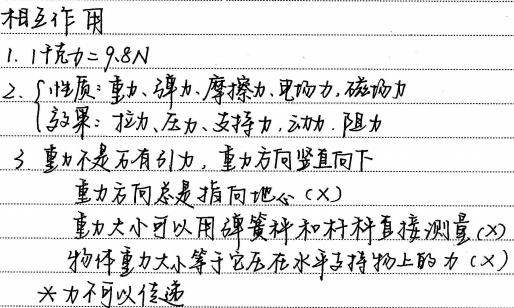 相互作用
1. 1千克力=9.8N
2. { 性质:重力、弹力、摩擦力、电场力,磁场力
效果:拉力、压力、支持力,动力.阻力
3 重力不是万有引力,重力方向竖直向下
重力方向总是指向地心(×)
重力大小可以用弹簧秤和杆秤直接测量(×)
物体重力大小等于它压在水平支持物上的力(×)
*力不可以传递